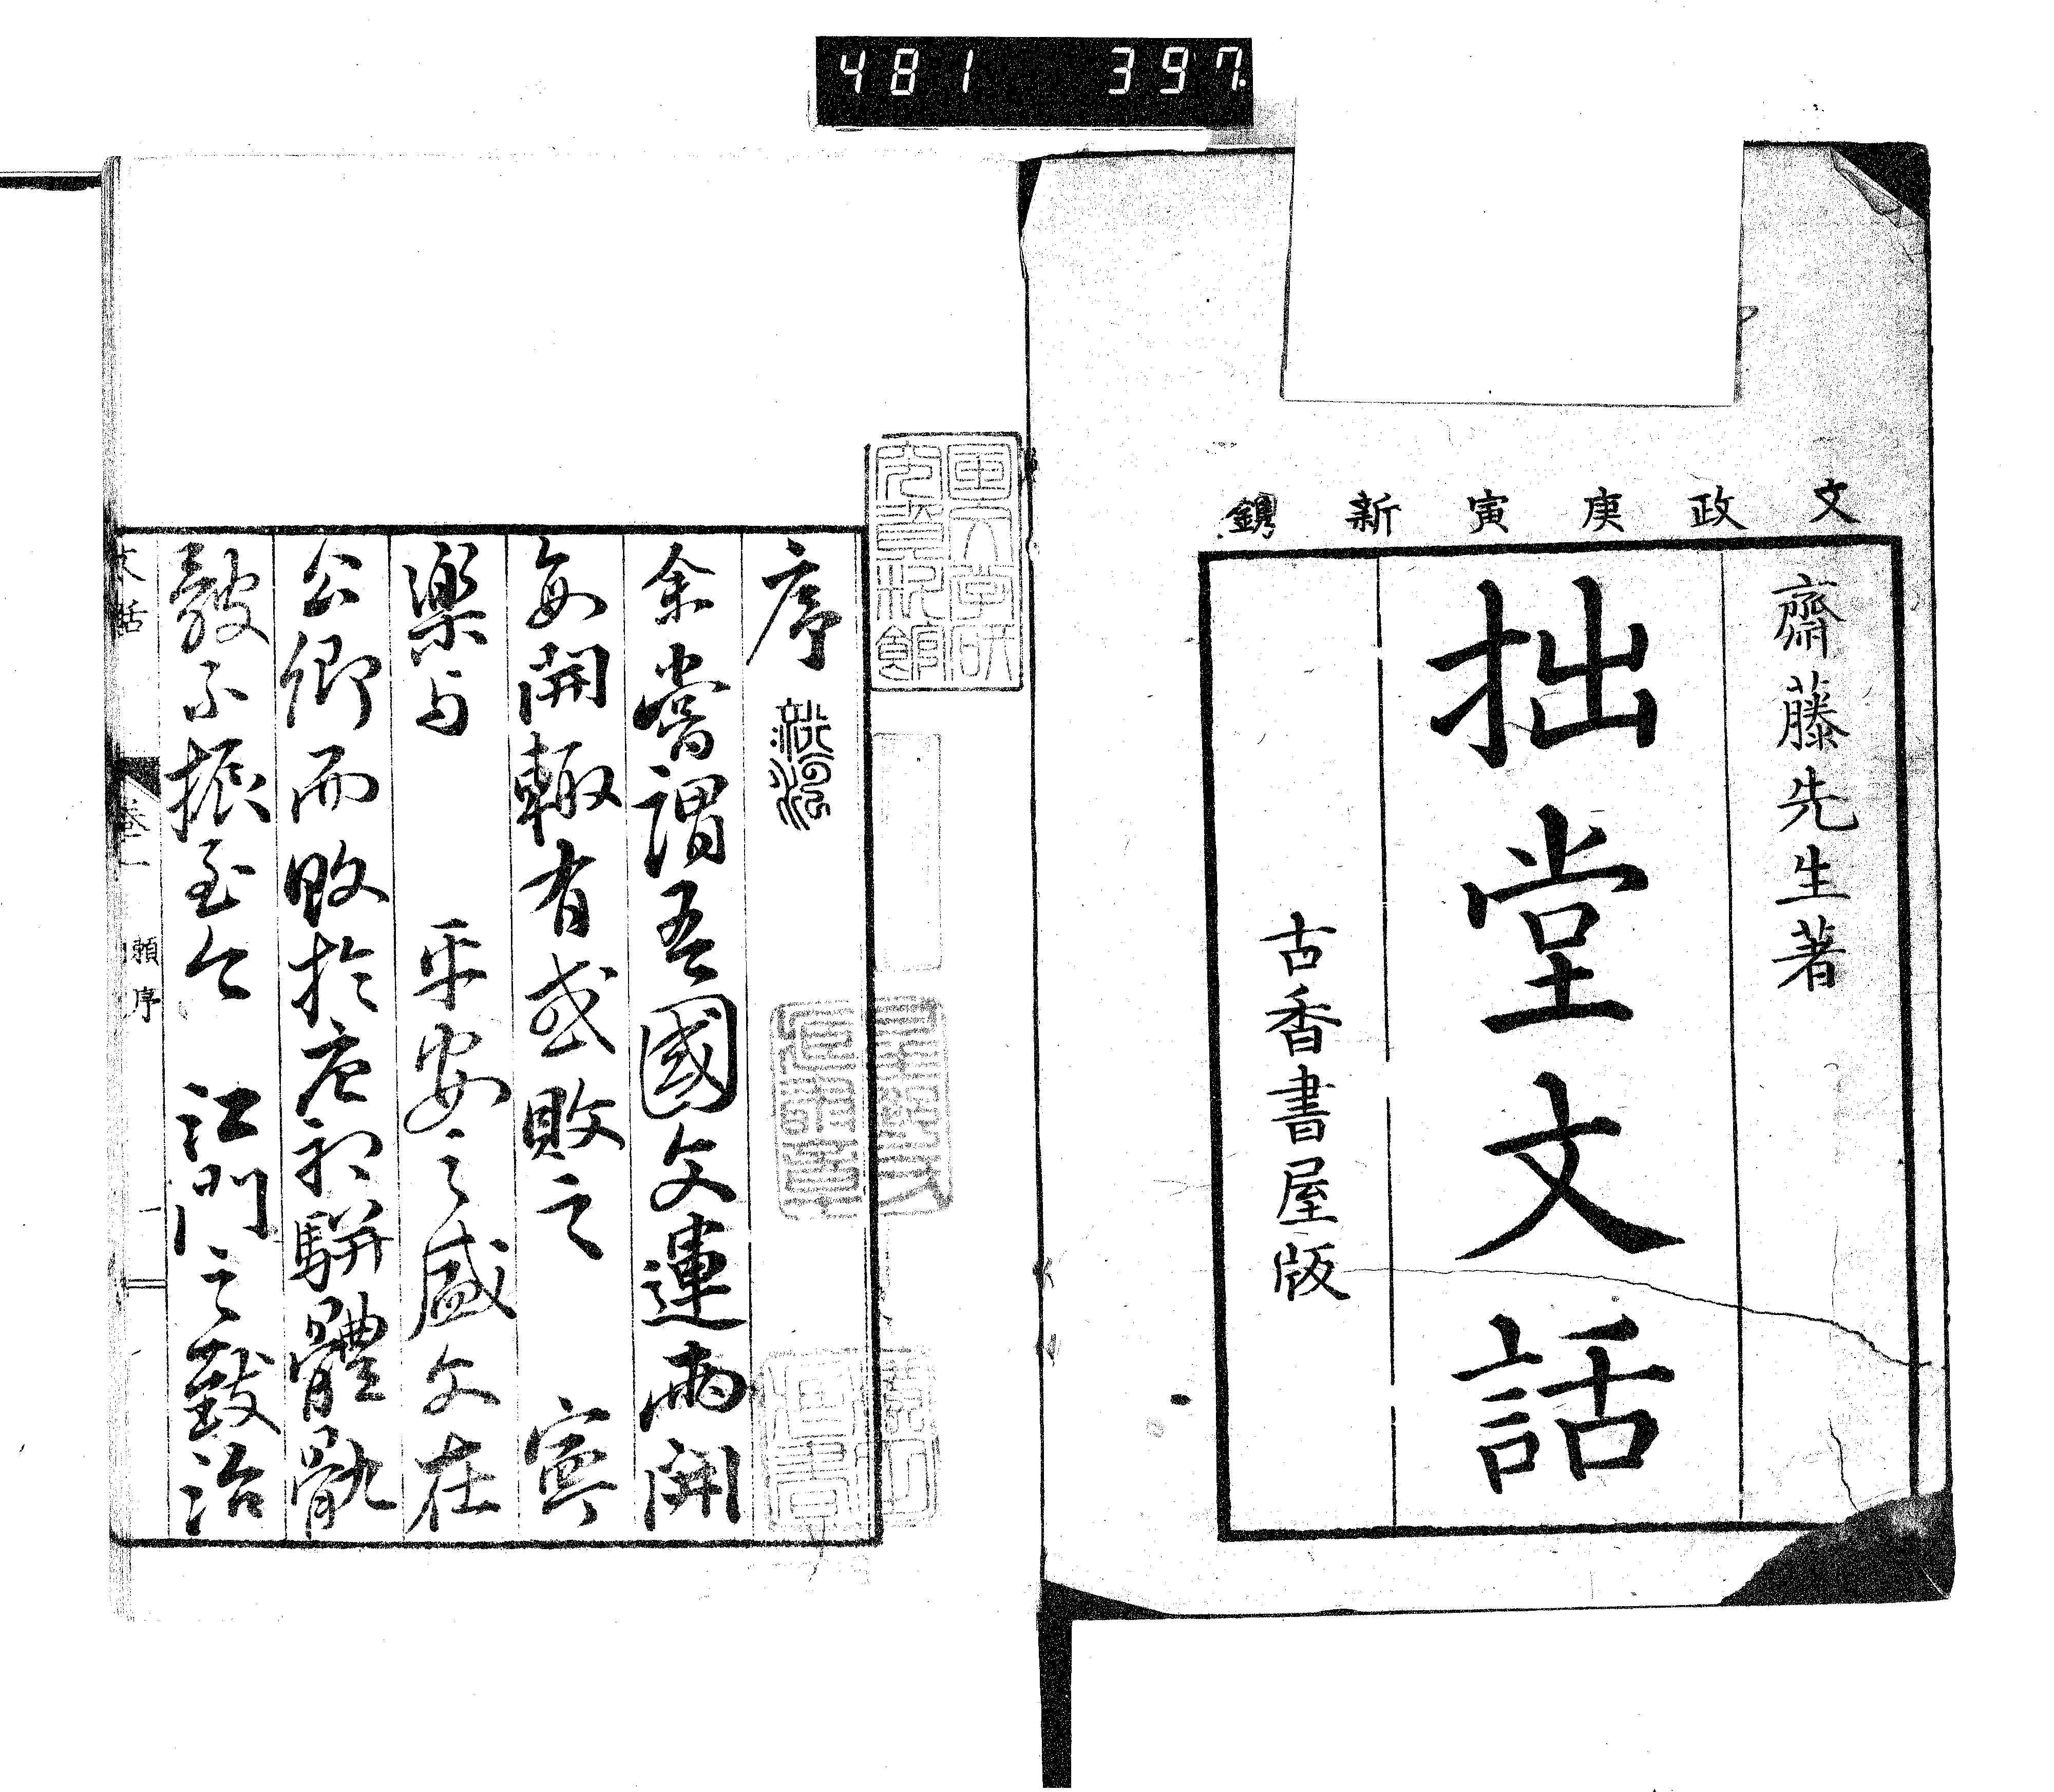 481 397
文政庚寅新鐫
齋藤先生著
拙堂文話
古香書屋版
序
余嘗謂吾國文運兩開
每開輒有或敗之 寧
樂与 平安之盛文在
公卿而敗於唐初駢體骫
骳不振至今 江門之敼治
文話 卷一 賴序 一